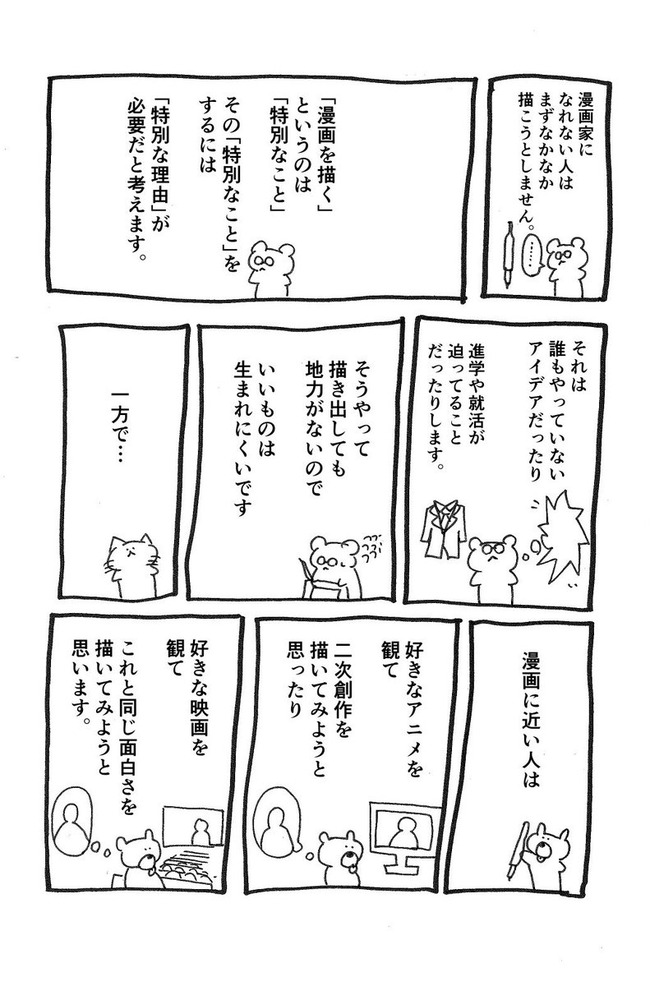 漫画家に
なれない人は
まずなかなか
描こうとしません。
……
「漫画を描く」
というのは
「特別なこと」
その「特別なこと」を
するには
「特別な理由」が
必要だと考えます。
それは
誰もやっていない
アイデアだったり
進学や就活が
迫ってること
だったりします。
そうやって
描き出しても
地力がないので
いいものは
生まれにくいです
一方で…
漫画に近い人は
好きなアニメを
観て
二次創作を
描いてみようと
思ったり
好きな映画を
観て
これと同じ面白さを
描いてみようと
思います。